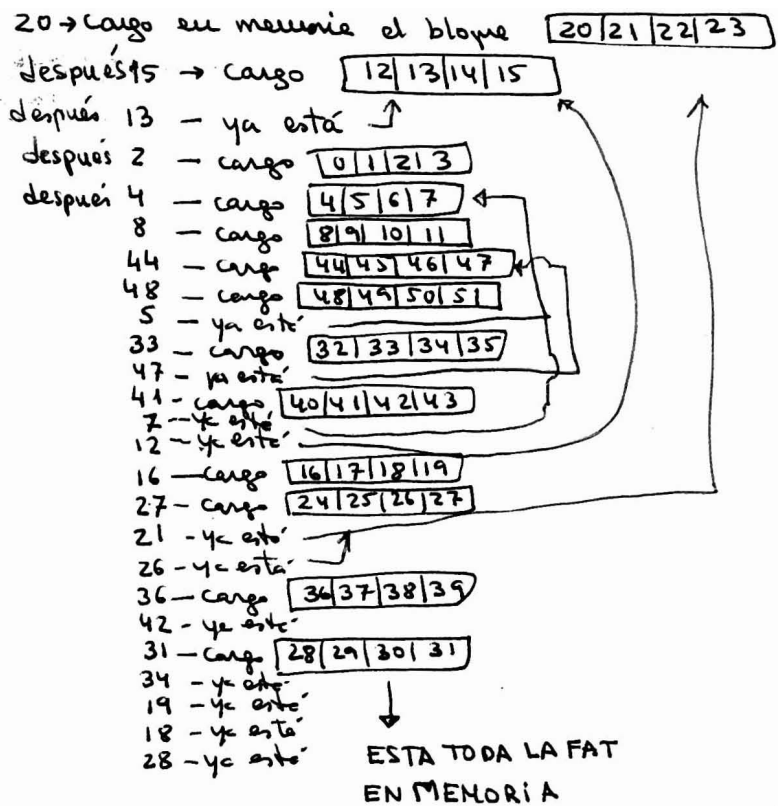 20 → cargo en memoria el bloque 20|21|22|23
después 15 → cargo 12|13|14|15
después 13 - ya está
después 2 - cargo 0|1|2|3
después 4 - cargo 4|5|6|7
8 - cargo 8|9|10|11
44 - cargo 44|45|46|47
48 - cargo 48|49|50|51
5 - ya está
33 - cargo 32|33|34|35
47 - ya está
41 - cargo 40|41|42|43
7 - ya está
12 - ya está
16 - cargo 16|17|18|19
27 - cargo 24|25|26|27
21 - ya está
26 - ya está
36 - cargo 36|37|38|39
42 - ya está
31 - cargo 28|29|30|31
34 - ya está
19 - ya está
18 - ya está
28 - ya está
ESTA TODA LA FAT
EN MEMORIA